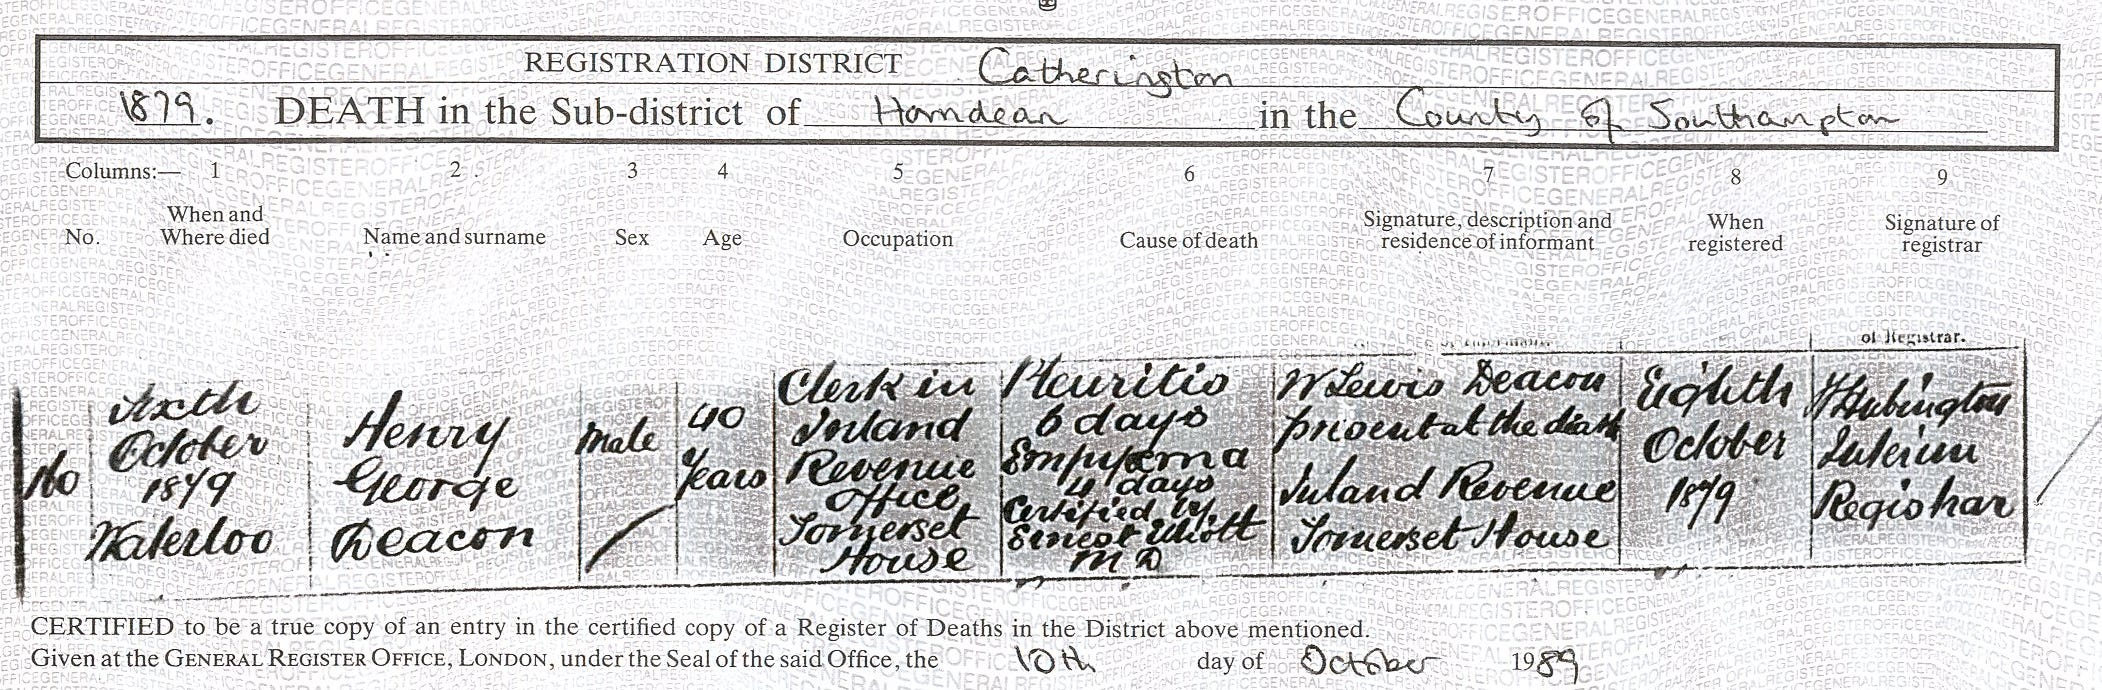 REGISTRATION DISTRICT Catherington
1879. DEATH in the Sub-district of Horndean in the County of Southampton
Columns:— 1 2 3 4 5 6 7 8 9
No. When and Where died Name and surname Sex Age Occupation Cause of death Signature, description and residence of informant When registered Signature of registrar
of Registrar.
Sixth
October
1879
Waterloo
Henry
George
Deacon
Male
40
Years
Clerk in
Inland
Revenue
Office
Somerset
House
Pleuritis
6 days
Empyema
4 days
Certified by
Ernest
M D
W Lewis Deacon
present at the death
Inland Revenue
Somerset House
Eighth
October
1879
Interim
Registrar
CERTIFIED to be a true copy of an entry in the certified copy of a Register of Deaths in the District above mentioned.
Given at the GENERAL REGISTER OFFICE, LONDON, under the Seal of the said Office, the 10th day of October 1989